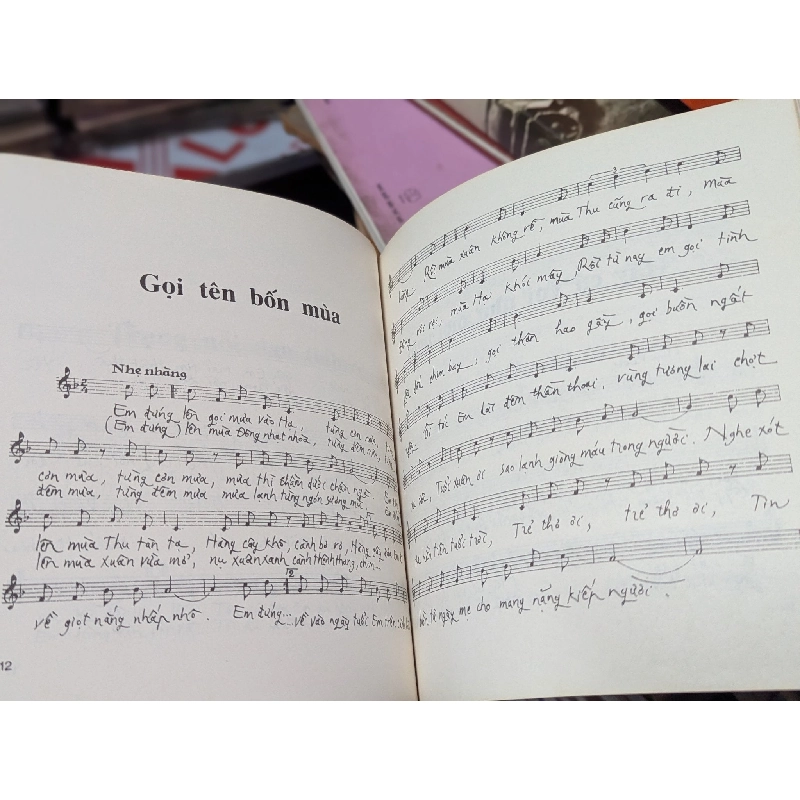 Gọi tên bốn mùa
Nhẹ nhàng
Em đứng lên gọi mưa vào Hạ, từng cơn
(Em đứng) lên mùa Đông nhạt nhòa, từng đêm
cơn mưa, từng cơn mưa, mưa thì thầm dưới chân ngà
đêm mưa, từng đêm mưa mưa lạnh từng ngón sương mù
lên mùa Thu tàn tạ, Hàng cây khô, cành bơ vơ, Hàng cây
lên mùa xuân vừa mở, nụ xuân xanh cành thênh thang, chim
về giọt nắng nhấp nhô. Em đứng... về vào ngày tuổi Em trên
12
Rồi mùa xuân không về, mùa Thu cũng ra đi, mùa
Đông vời vời, mùa Hạ khói mây, Rồi từ nay em gọi tình
gọi thân hao gầy, gọi buồn ngất
Em lời đêm thần thoại, vùng tương lai chợt
Trời xuân ơi sao lạnh giòng máu trong người. Nghe xót
tuổi trời, Trẻ thơ ơi, trẻ thơ ơi, Tin
từ ngày mẹ cho mang nặng kiếp người.